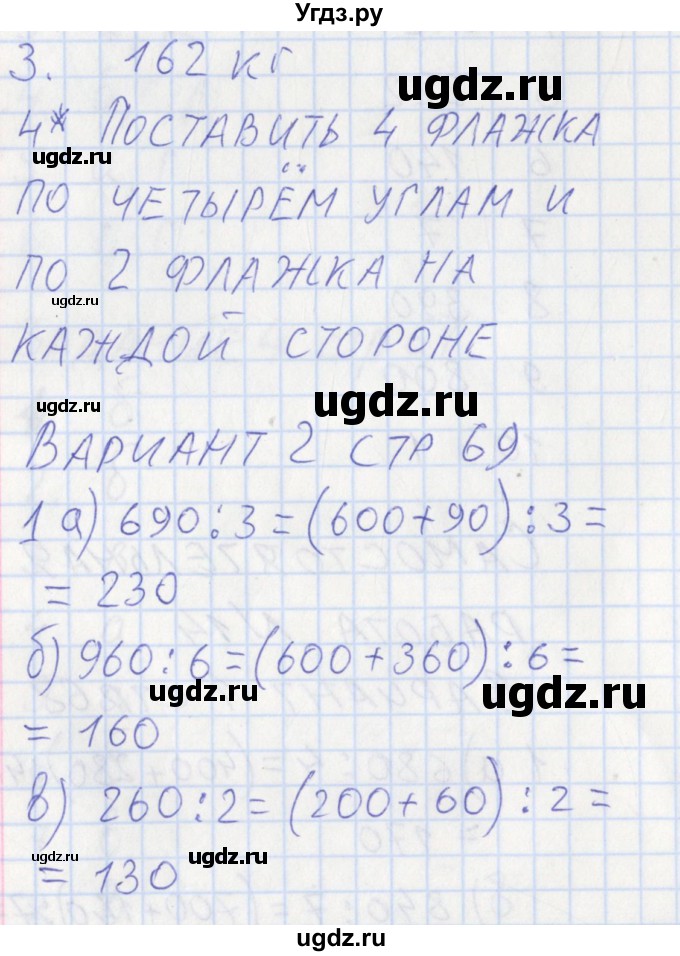 Угдз.ру
3. 162 кг
ugdz.ru
4* Поставить 4 флажка
ugdz.ru
по четырём углам и
по 2 флажка на
ugdz.ru
каждой стороне
ugdz.ru
ugdz.ru
Вариант 2 стр 69
1 а) 690 : 3 = (600 + 90) : 3 =
= 230
б) 960 : 6 = (600 + 360) : 6 =
ugdz.ru
ugdz.ru
= 160
в) 260 : 2 = (200 + 60) : 2 =
ugdz.ru
ugdz.ru
ugdz.ru
= 130
ugdz.ru